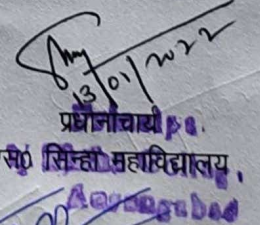 13/01/2022
प्रधानाचार्य
स0 सिन्हा महाविद्यालय,
Aurangabad